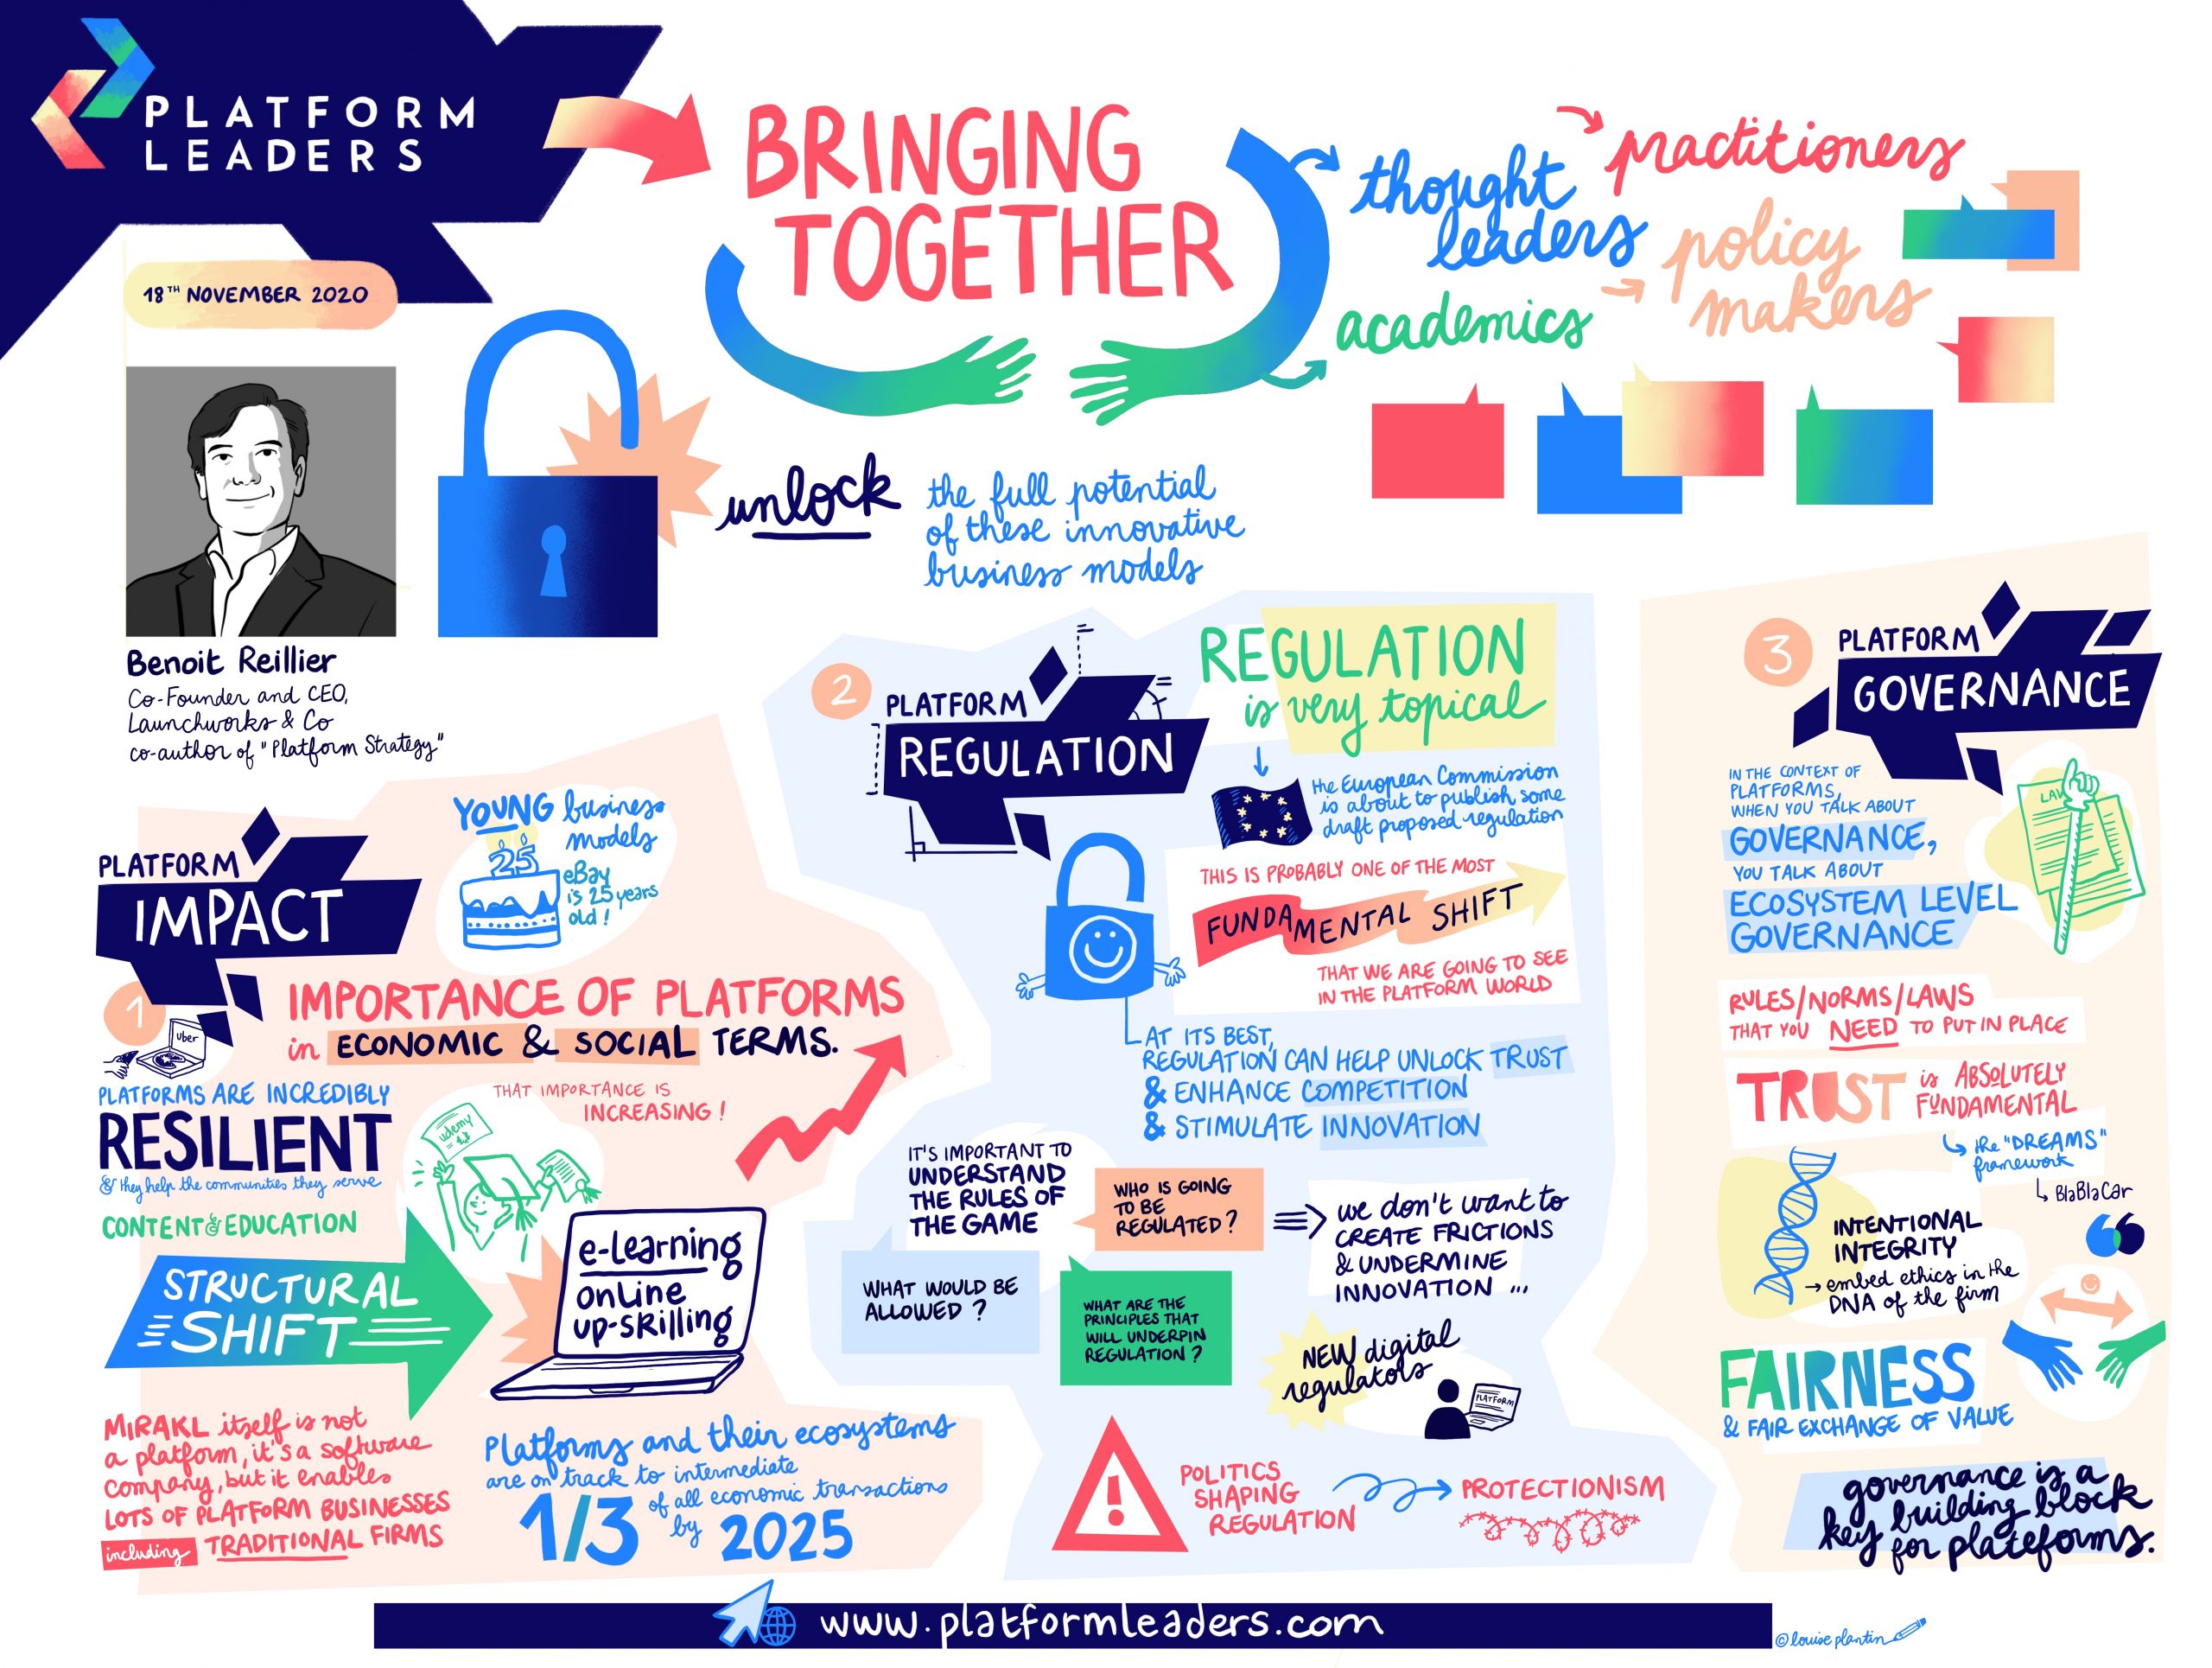 PLATFORM
LEADERS
18TH NOVEMBER 2020
BRINGING
TOGETHER
thought
leaders
practitioners
policy
makers
academics
unlock
the full potential
of these innovative
business models
Benoit Reillier
Co-Founder and CEO,
Launchworks & Co
co-author of "Platform Strategy"
PLATFORM
IMPACT
1
YOUNG business
models
25
eBay
is 25 years
old!
IMPORTANCE OF PLATFORMS
in ECONOMIC & SOCIAL TERMS.
uber
PLATFORMS ARE INCREDIBLY
RESILIENT
& they help the communities they serve
THAT IMPORTANCE IS
INCREASING!
udemy
CONTENT & EDUCATION
STRUCTURAL
SHIFT
e-learning
online
up-skilling
MIRAKL itself is not
a platform, it's a software
company, but it enables
LOTS OF PLATFORM BUSINESSES
including TRADITIONAL FIRMS
Platforms and their ecosystems
are on track to intermediate
1/3 of all economic transactions
by 2025
2
PLATFORM
REGULATION
REGULATION
is very topical
the European Commission
is about to publish some
draft proposed regulation
THIS IS PROBABLY ONE OF THE MOST
FUNDAMENTAL SHIFT
THAT WE ARE GOING TO SEE
IN THE PLATFORM WORLD
AT ITS BEST,
REGULATION CAN HELP UNLOCK TRUST
& ENHANCE COMPETITION
& STIMULATE INNOVATION
IT'S IMPORTANT TO
UNDERSTAND
THE RULES OF
THE GAME
WHO IS GOING
TO BE
REGULATED?
WHAT WOULD BE
ALLOWED?
WHAT ARE THE
PRINCIPLES THAT
WILL UNDERPIN
REGULATION?
we don't want to
CREATE FRICTIONS
& UNDERMINE
INNOVATION ...
NEW digital
regulators
PLATFORM
!
POLITICS
SHAPING
REGULATION
PROTECTIONISM
3
PLATFORM
GOVERNANCE
LAW
IN THE CONTEXT OF
PLATFORMS,
WHEN YOU TALK ABOUT
GOVERNANCE,
YOU TALK ABOUT
ECOSYSTEM LEVEL
GOVERNANCE
RULES/NORMS/LAWS
THAT YOU NEED TO PUT IN PLACE
TRUST is ABSOLUTELY
FUNDAMENTAL
the "DREAMS"
framework
BlaBlaCar
INTENTIONAL
INTEGRITY
embed ethics in the
DNA of the firm
FAIRNESS
& FAIR EXCHANGE OF VALUE
governance is a
key building block
for plateforms.
www.platformleaders.com
© louise plantin